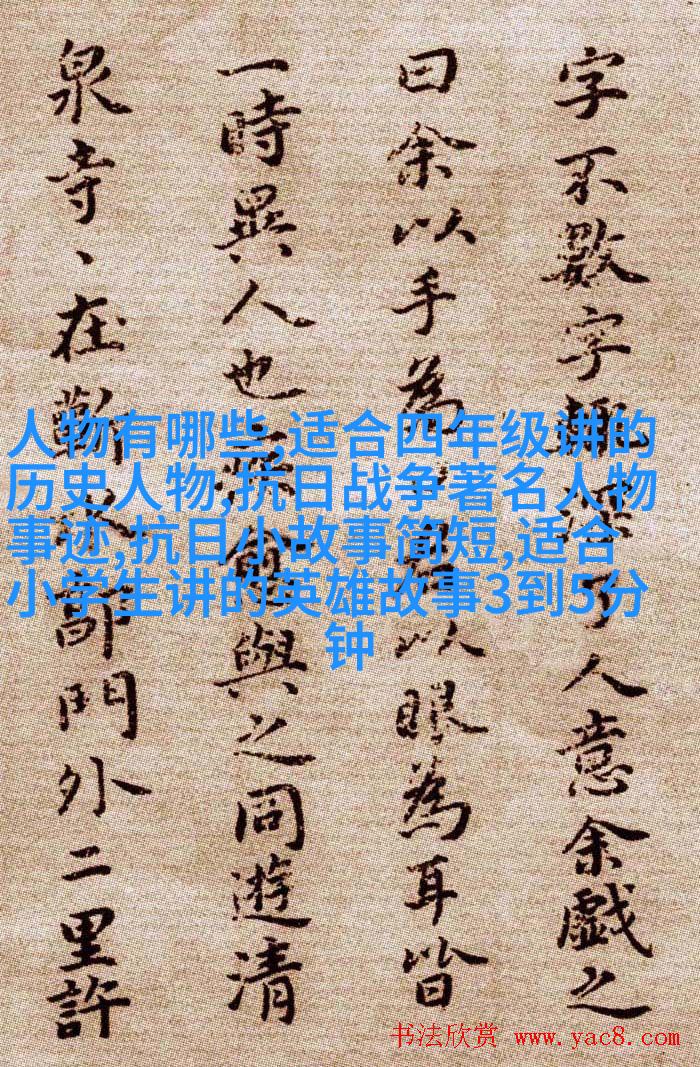 字不數字了人意余戲之
曰余以手為以眼為耳皆
一時異人也與之同遊清
泉寺、在蘄水郭門外二里許
人物有哪些,适合四年级讲的
历史人物,抗日战争著名人物
事迹,抗日小故事简短,适合
小学生讲的英雄故事3到5分
钟
书法欣赏 www.yac8.com